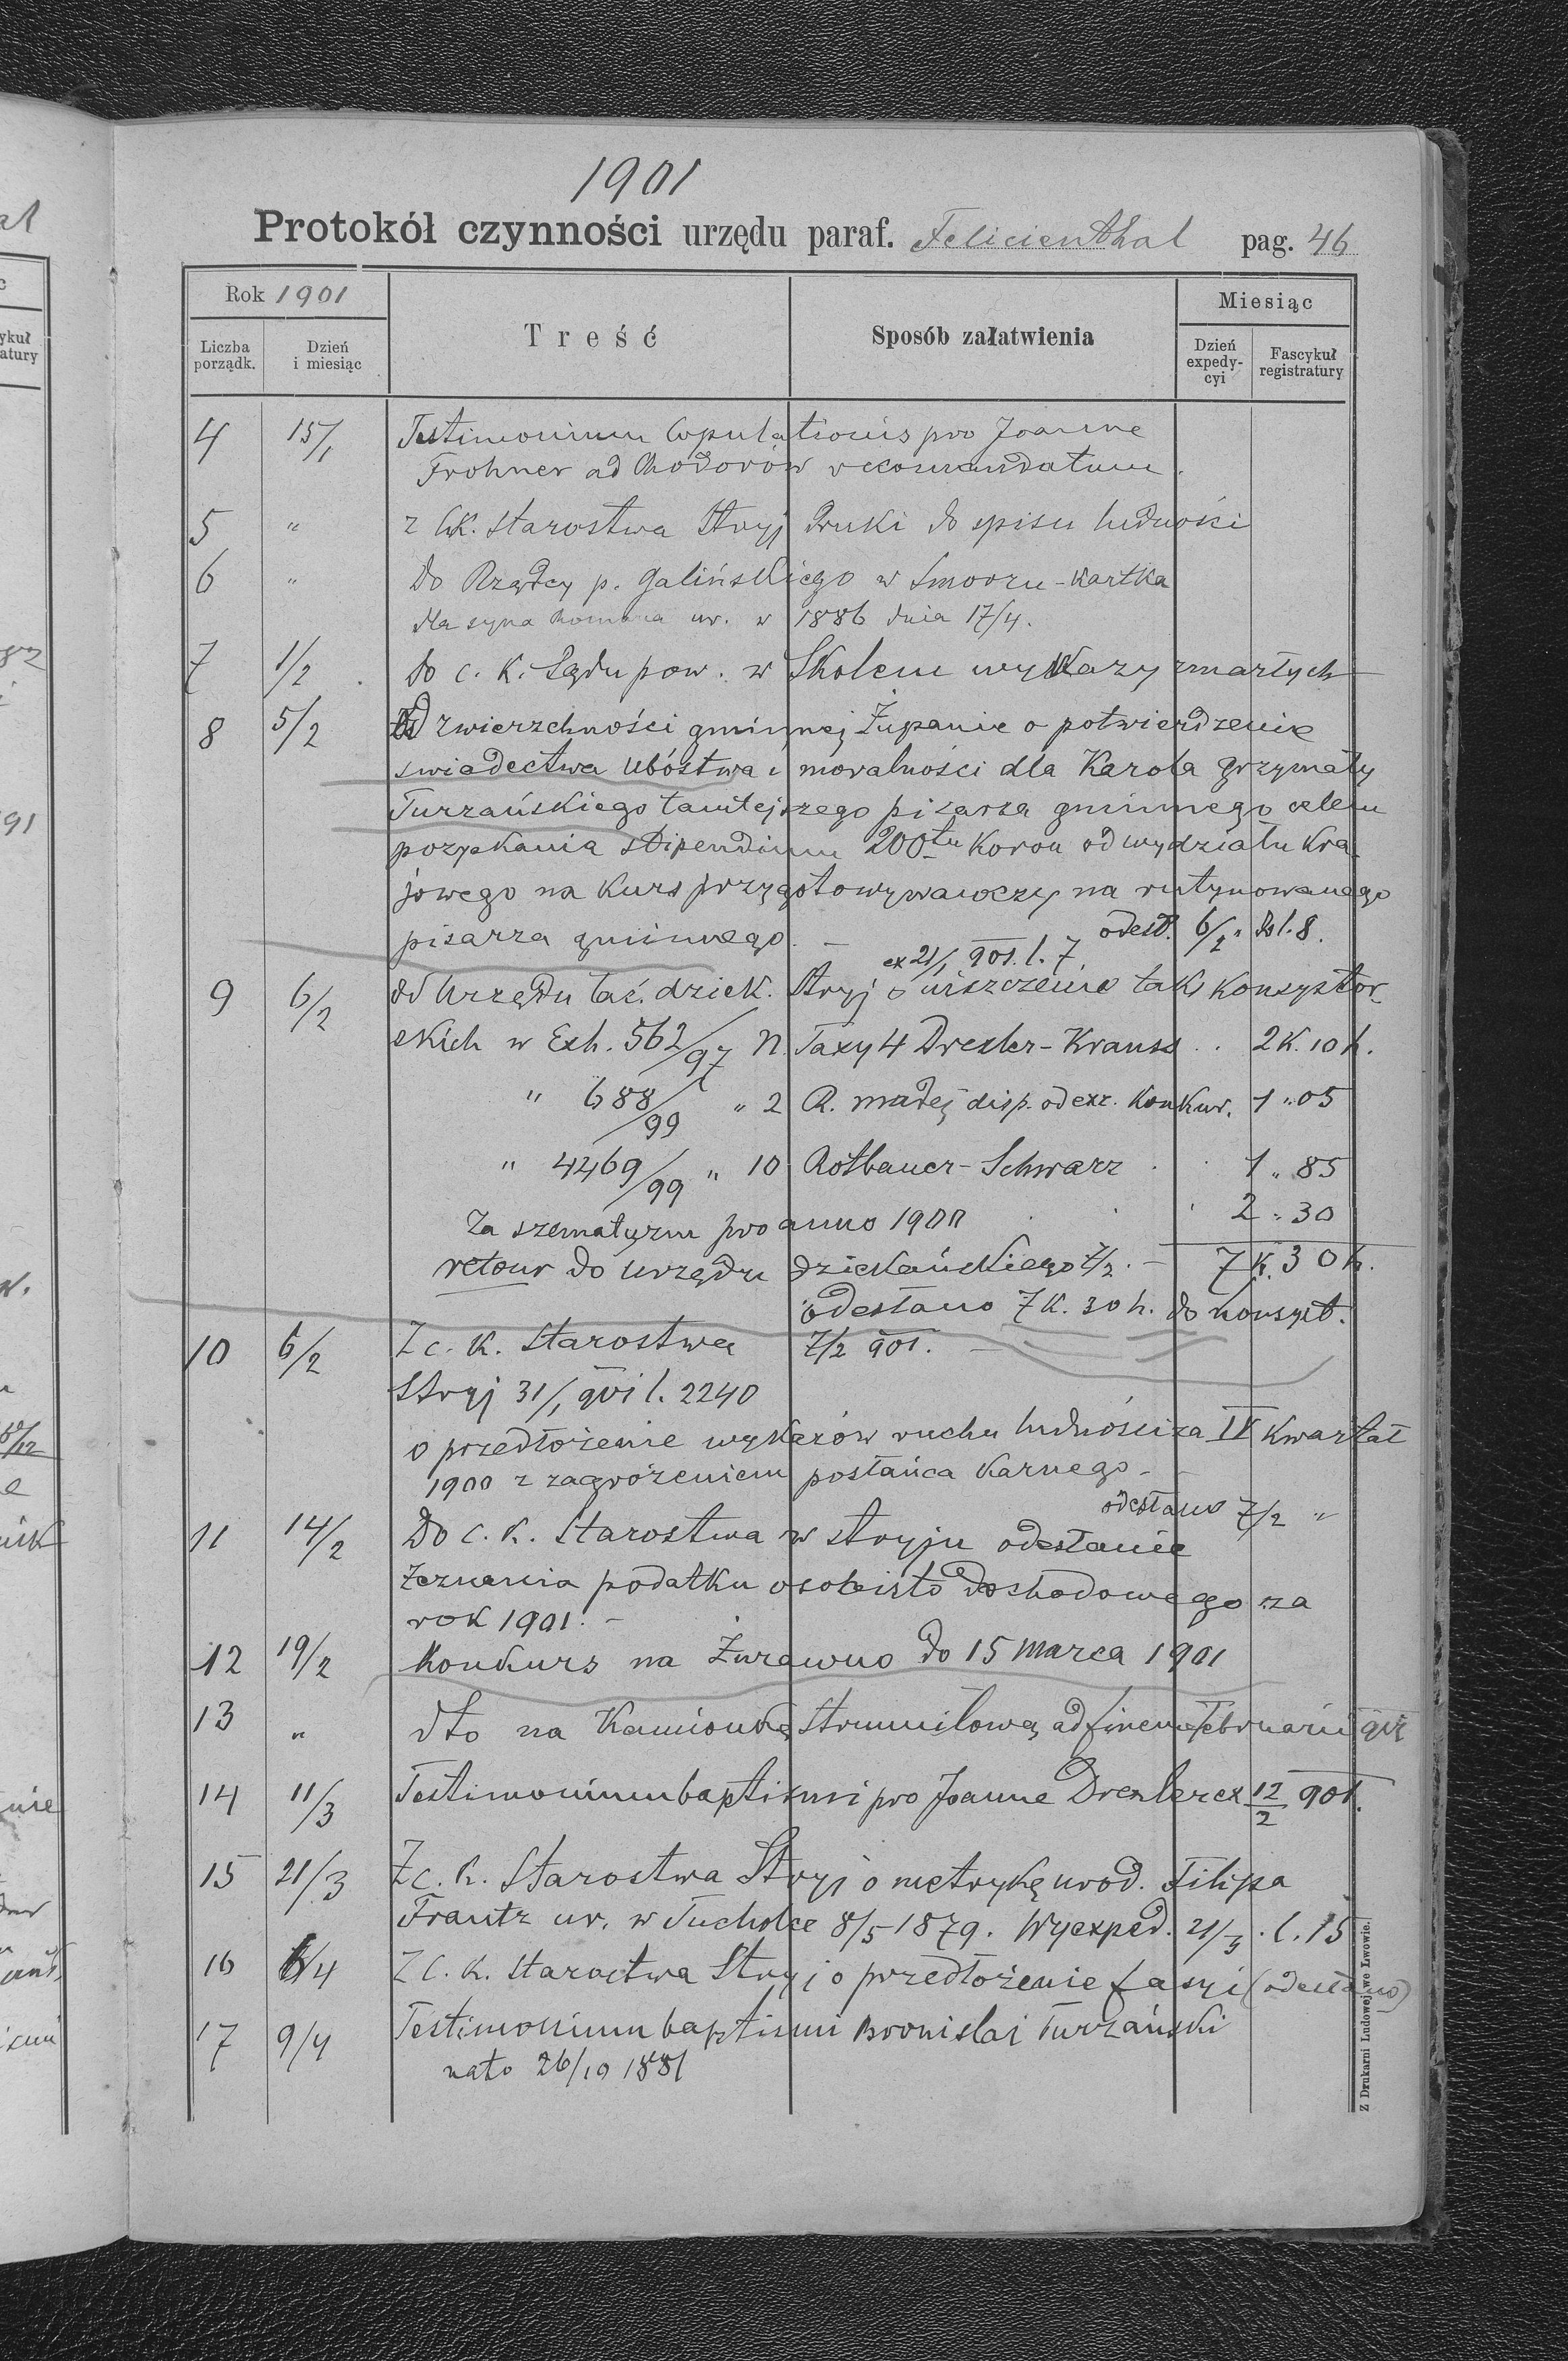 1901
Protokół czynności urzędu paraf. Felicienthal pag. 46
Rok 1901
Liczba porządk.
Dzień i miesiąc
Treść
Sposób załatwienia
Miesiąc
Dzień expedycyi
Fascykuł registratury
4 15/1 Testimonium Copulationis pro Joanne
Frohner ad Chodorów rekomandatum.
5 " z CK. Starostwa Stryj druki do spisu ludności
6 " Do Rządcy p. Galińskiego w Smorzu - Kartka
dla syna Romana ur. w 1886 dnia 17/4.
7 1/2 do c. k. Sądu pow. w Skolem wykazy zmarłych
8 5/2 Od zwierzchności gminnej Żupanie o potwierdzenie
swiadectwa ubóstwa i moralności dla Karola Grzymały
Turzańskiego tamtejszego pisarza gminnego celem
pozyskania stipendium 200tu Koron od wydziału kra-
jowego na Kurs przygotowywawczy na rutynowanego
pisarza gminnego. — odesł. 6/2 " do l. 8.
ex 21/1 901. l. 7.
9 6/2 Od Urzędu łać. dziek. Stryj o uiszczenie taks konsystor-
skich w Exh. 562/97 N. Taxy 4 Drexler - Krauss .. 2 K. 10 h.
" 688/99 " 2 R. Madej disp. od exz. Konkur. 1 " 05
" 4469/99 " 10 Rotbauer - Schwarz . . 1 " 85
Za szematyzm pro anno 1900 . . . 2 " 30
retour do Urzędu dziekańskiego 7/2. — 7 K. 30 h.
odesłano 7 K. 30 h. do konsyst.
10 6/2 Z c. K. Starostwa 7/2 901. —
Stryj 31/1 901 l. 2240
o przedłożenie wykazów ruchu ludności za IV Kwartał
1900 z zagrożeniem posłańca Karnego. —
odesłano 7/2 "
11 14/2 Do c. K. Starostwa w Stryju odesłanie
Zeznania podatku osobisto dochodowego za
rok 1901. —
12 19/2 Konkurs na Żurawno do 15 Marca 1901
13 " dto na Kamionkę Strumiłową ad finem Februarii 901
14 11/3 Testimonium baptismi pro Joanne Drexler ex 12/2 901.
15 21/3 Z c. K. Starostwa Stryj o metrykę urod. Filipa
Frantz ur. w Tucholce 8/5 1879. Wyexped. 21/3 . l. 15
16 6/4 Z C. K. Starostwa Stryj o przedłożenie fasyi (odesłano)
17 9/4 Testimonium baptismi Bronislai Turzański
nato 26/10 1881
Z Drukarni Ludowej we Lwowie.